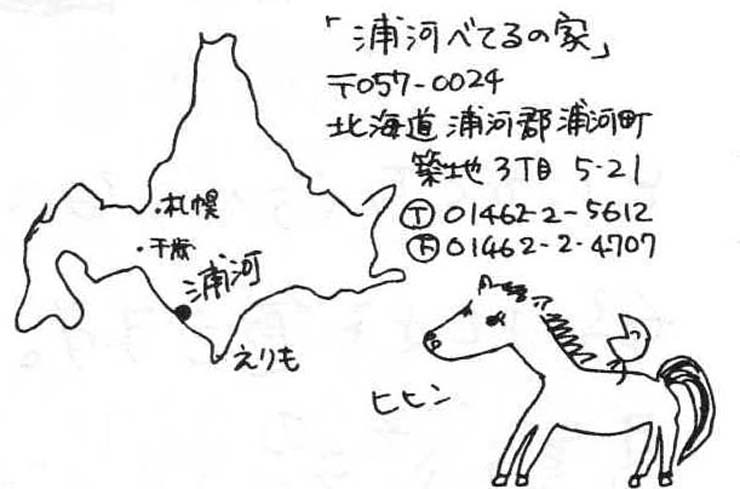 「浦河べてるの家」
〒057-0024
北海道 浦河郡 浦河町
築地3丁目 5-21
Ⓣ 01462-2-5612
Ⓕ 01462-2-4707
・札幌
・千歳
浦河
えりも
ヒヒン